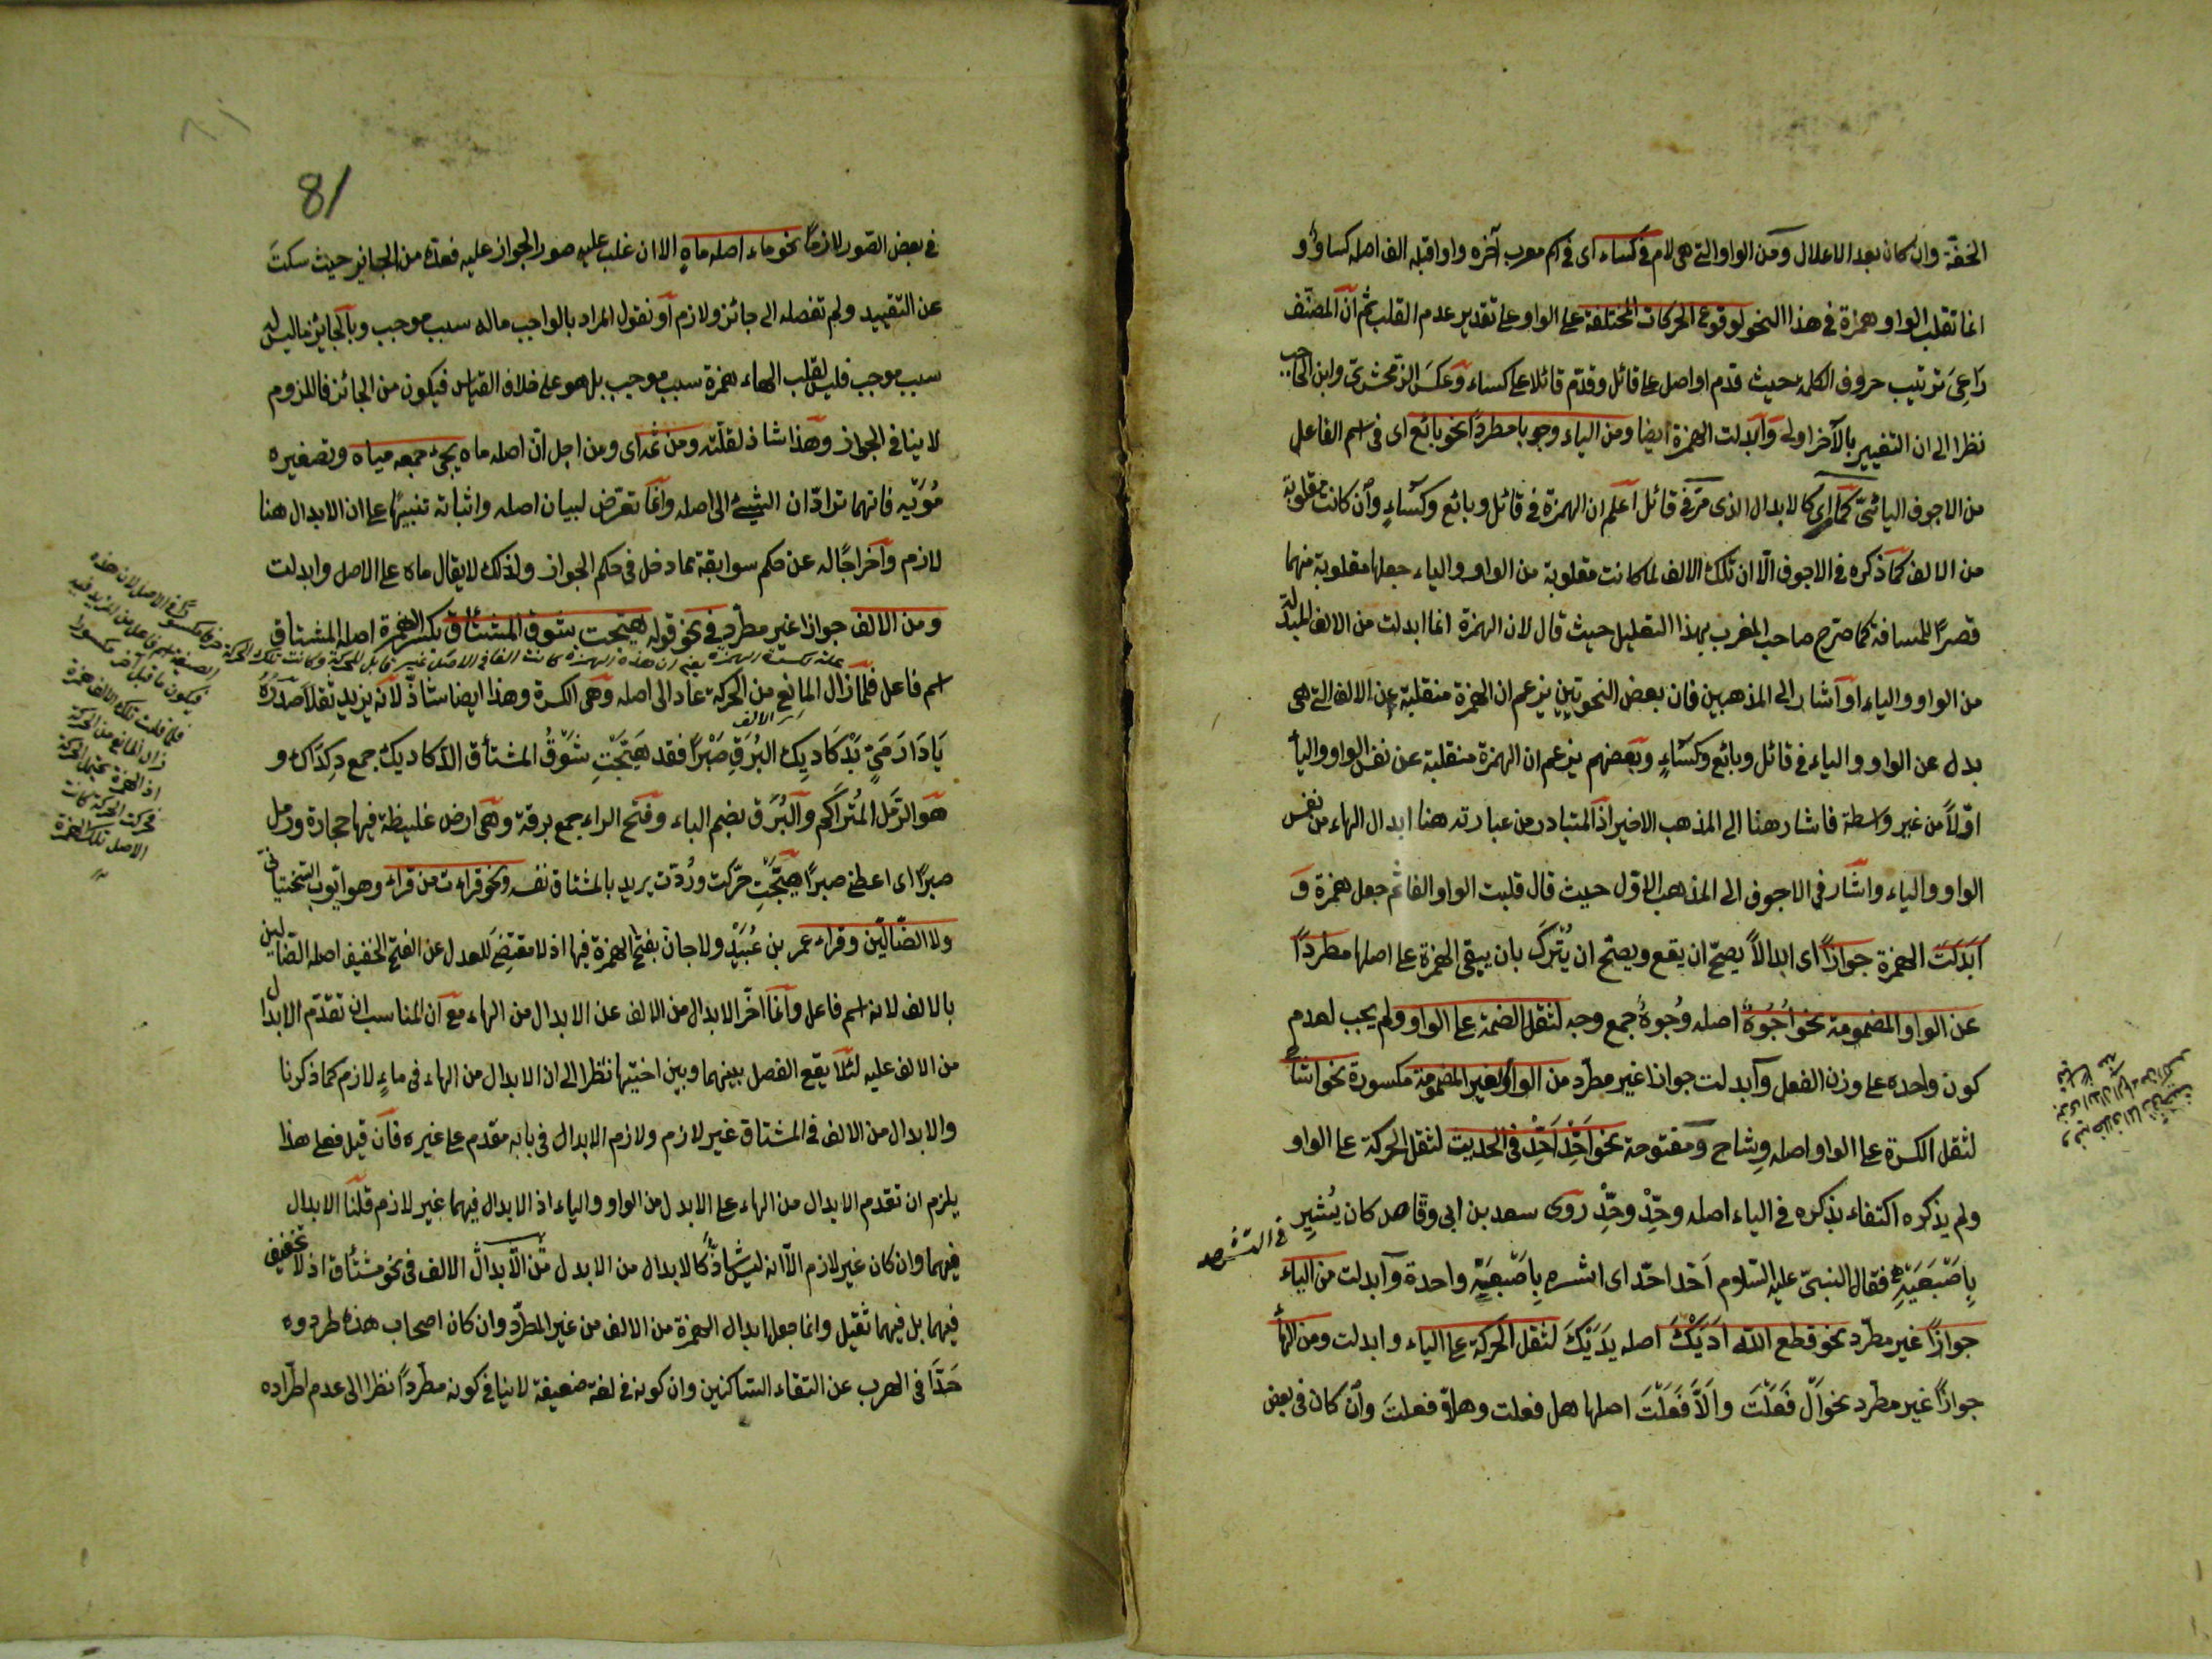 الخفة وان كان بعد الاعلال ومن الواو التى هى لام فى كساء اى فى اسم معرب آخره واو قبله الف اصله كساو و
انما تقلب الواو همزة فى هذا النحو لوقوع الحركات المختلفة على الواو على تقدير عدم القلب ثم ان المصنف
راعى ترتيب حروف الكلمة حيث قدم اواصل على قائل وقدم قائلا على كساء وعكس الزمخشرى وابن الحاجب
نظرا الى ان التغيير بالآخر اولى وابدلت الهمزة ايضا ومن الياء وجوبا مطردا نحو بائع اى فى اسم الفاعل
من الاجوف اليائى كما مر اى كالابدال الذى مر فى قائل اعلم ان الهمزة فى قائل وبائع وكساء وان كانت مقلوبة
من الالف كما ذكره فى الاجوف الا ان تلك الالف لما كانت مقلوبة من الواو والياء جعلها مقلوبة منهما
قصرا للمسافة كما صرح صاحب المغرب بهذا التعليل حيث قال لان الهمزة انما ابدلت من الالف المبدلة
من الواو والياء او اشار الى المذهبين فان بعض النحويين يزعم ان الهمزة منقلبة عن الالف التى هى
بدل عن الواو والياء فى قائل وبائع وكساء وبعضهم يزعم ان الهمزة منقلبة عن نفس الواو والياء
اولا من غير واسطة فاشار هنا الى المذهب الاخير اذ المتبادر من عبارته هنا ابدال الهاء من نفس
الواو والياء واشار فى الاجوف الى المذهب الاول حيث قال قلبت الواو الفا ثم جعل همزة و
ابدلت الهمزة جوازا اى ابدالا يصح ان يقع ويصح ان يترك بان يبقى الهمزة على اصلها مطردا
عن الواو المضمومة نحو اجوه اصله وجوه جمع وجه لثقل الضمة على الواو ولم يجب لعدم
كون واحده على وزن الفعل وابدلت جوازا غير مطرد من الواو الغير المضمومة مكسورة نحو اشاح
لثقل الكسرة على الواو اصله وشاح ومفتوحة نحو احد احد فى الحديث لثقل الحركة على الواو
ولم يذكره اكتفاء بذكره فى الياء اصله وحد وحد روى سعد بن ابى وقاص كان يشير
فى التشهد
باصبعيه فقال النبى عليه السلام احد احد اى اشر باصبعية واحدة وابدلت من الياء
جوازا غير مطرد نحو قطع الله اديك اصله يديك لثقل الحركة على الياء وابدلت ومن الهاء
جوازا غير مطرد نحو أل فعلت وألا فعلت اصلها هل فعلت وهلا فعلت وان كان فى بعض
81
فى بعض الصور لازما نحو ماء اصله ماه الا ان غلب عليه صور الجواز عليه فعده من الجايز حيث سكت
عن التقييد ولم تفصله الى جائز ولازم او نقول المراد بالواجب ماله سبب موجب وبالجايز ما ليس له
سبب موجب فليس لقلب الهاء همزة سبب موجب بل هو على خلاف القياس فيكون من الجائز فاللزوم
لا ينافى الجواز وهذا شاذ لقلته ومن ثمه اى ومن اجل ان اصله ماه يجئ جمعه مياه وتصغيره
مويه فانهما ترادان الشيئ الى اصله وانما تعرض لبيان اصله واثباته تنبيها على ان الابدال هنا
لازم واخراجا له عن حكم سوابقه مما دخل فى حكم الجواز ولذلك لا يقال ماه على الاصل وابدلت
ومن الالف جوازا غير مطرد فى نحو قوله هيجت شوق المشتئاق بكسر الهمزة اصله المشتاق
اسم فاعل فلما زال المانع من الحركة عاد الى اصله وهى الكسرة وهذا ايضا شاذ لانه يزيد ثقلا صدره
يا دار مى بدكاديك البرق صبرا فقد هيجت شوق المشتأق الدكاديك جمع دكداك و
هو الرمل المتراكم والبرق بضم الباء وفتح الراء جمع برقة وهى ارض غليظة فيها حجارة ورمل
صبرا اى اعطنى صبرا هيجت حركت وردت يريد بالمشتاق نفسه ونحو قراءت من قراء وهو ايوب السختيانى
ولا الضالين وقراء عمر بن عبيد ولا جان بفتح الهمزة فيها اذ لا مقتضى للعدل عن الفتح الخفيف اصله الضالين
بالالف لانه اسم فاعل وانما اخر الابدال من الالف عن الابدال من الهاء مع ان المناسب ان تقدم الابدال
من الالف عليه لئلا يقع الفصل بينهما وبين اختيها نظرا الى ان الابدال من الهاء فى ماء لازم كما ذكرنا
والابدال من الالف فى المشتاق غير لازم ولازم الابدال فى بابه مقدم على غيره فان قيل فعلى هذا
يلزم ان تقدم الابدال من الهاء على الابدل من الواو والياء اذ الابدال فيهما غير لازم قلنا الابدال
فيهما وان كان غير لازم الا انه ليس شاذا كالابدال من الابدل من الابدال الالف فى نحو مشتأق اذ لا تخفيف
فيهما بل فيهما ثقيل وانما جعلها ابدال الهمزة من الالف من غير المطرد وان كان اصحاب هذه طردوه
جدا فى الهرب عن التقاء الساكنين وان كونه فى لغة ضعيفة لا ينافى كونه مطردا نظرا الى عدم اطراده